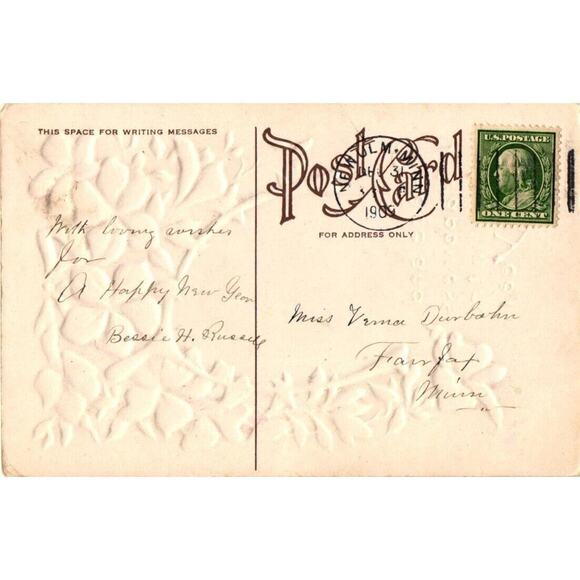 THIS SPACE FOR WRITING MESSAGES
Post Card
FOR ADDRESS ONLY
NEW ULM. MINN
31
190
U.S. POSTAGE
ONE CENT
With loving wishes
for
A Happy New Year
Bessie H. Russell
Miss Verna Durbahn
Fairfax
Minn